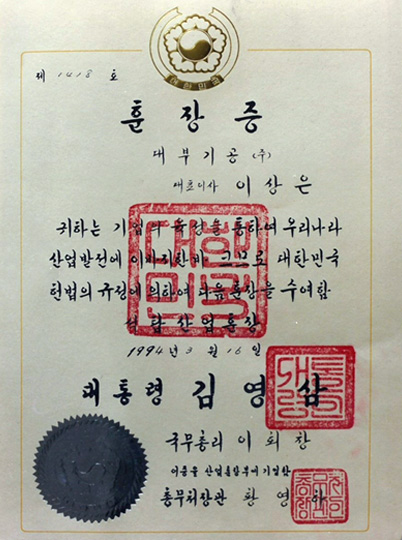 대한민국
제 1418 호
훈장증
대부기공(주)
대표이사 이상은
귀하는 기업의 육성을 통하여 우리나라
산업발전에 이바지한바 크므로 대한민국
헌법의 규정에 의하여 다음 훈장을 수여함
석탑산업훈장
1994년 3월 16일
대통령 김영삼
국무총리 이회창
이증을 산업훈장부에 기입함
총무처장관 황영하